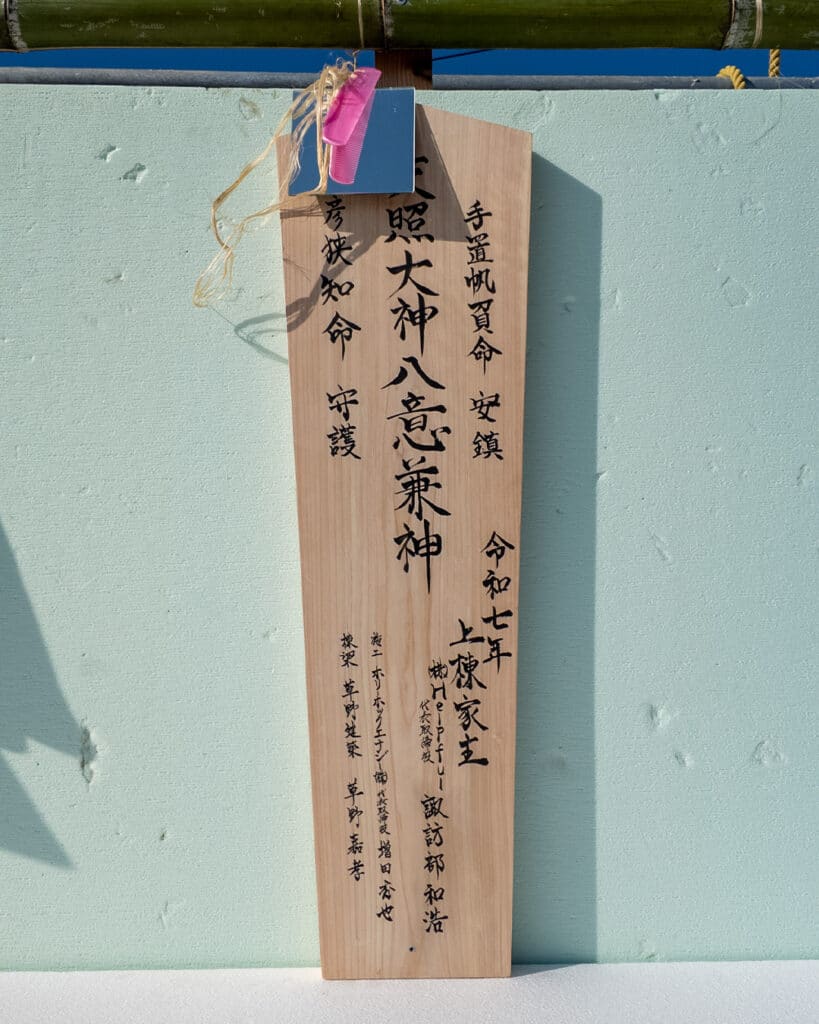 手置帆負命 安鎮
令和七年
上棟家主
㈱Helpful 代表取締役 諏訪部和浩
天照大神八意兼神
施工 ホリホックエナジー㈱ 代表取締役 増田 也
彦狭知命 守護
棟梁 草野建築 草野嘉孝